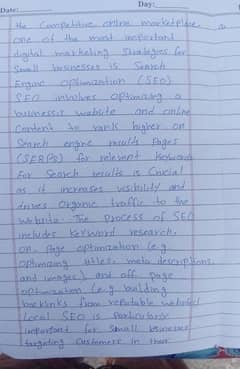 Date:
Day:
the Competitive online marketplace,
one of the most important
digital marketing Strategies for
Small businesses is Search
Engine Optimization (SEO)
SEO involves Optimizing a
business's website and online
Content to rank higher on
Search engine results Pages
(SERPs) for relevent Keywords
For Search results is Crucial
as it increases visibility and
drives Organic traffic to the
website. The Process of SEO
includes Keyword research,
on-Page optimization (e.g.
optimizing titles, meta descriptions,
and images) and off-page
optimization (e.g. building
backlinks from reputable websites)
Local SEO is Particularly
important for Small businesses
targeting Customers in their